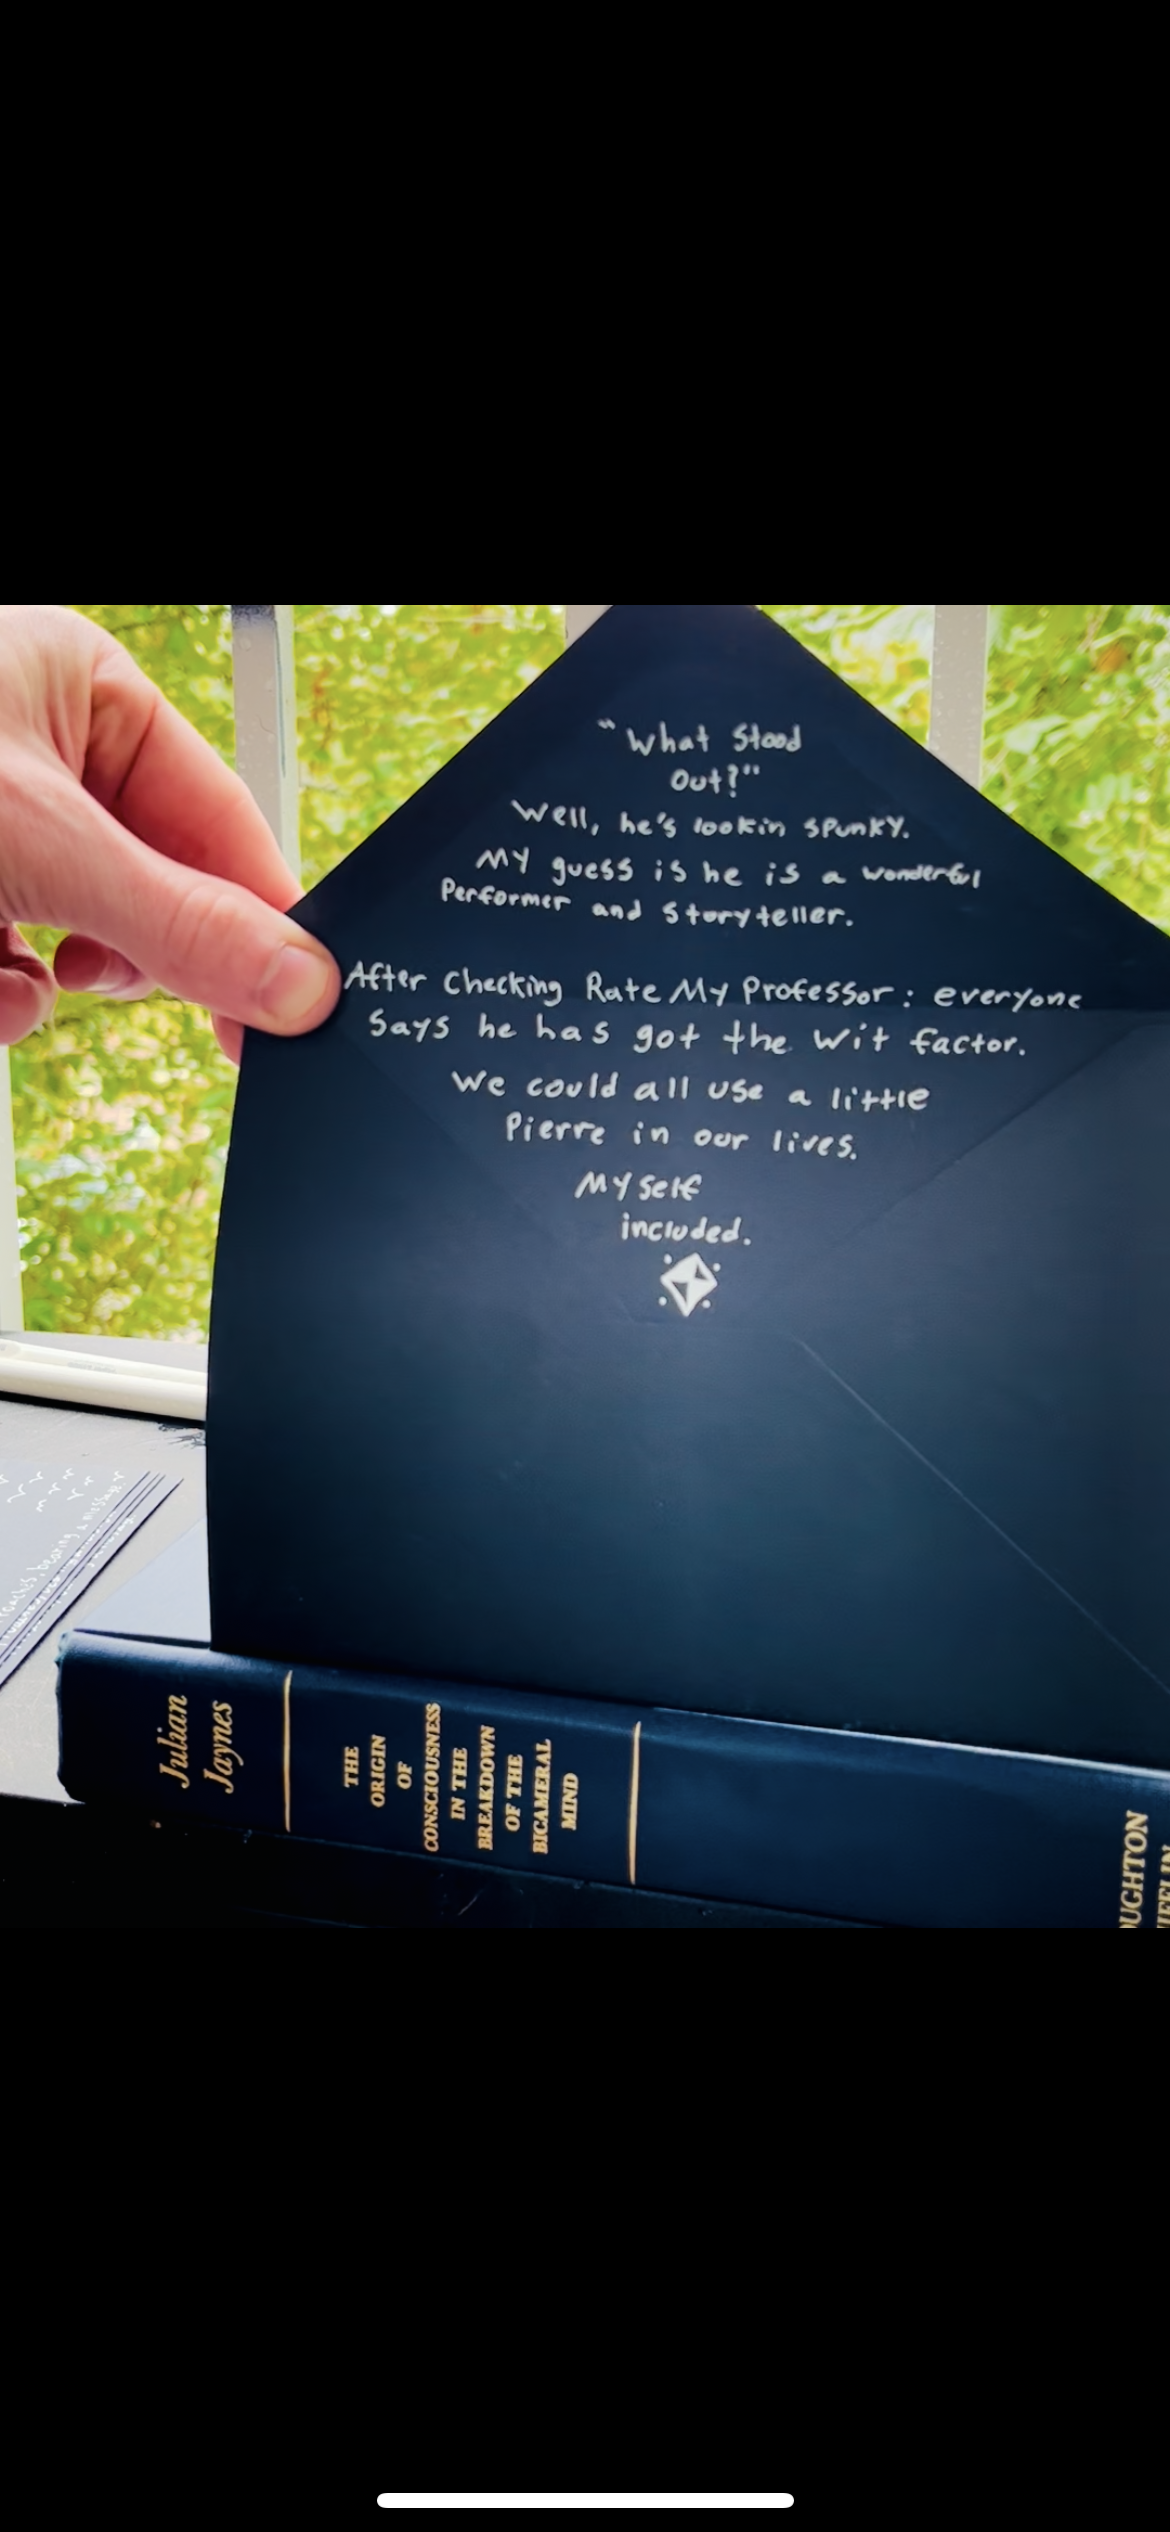 "What stood
out?"
Well, he's lookin spunky.
My guess is he is a wonderful
Performer and storyteller.
After checking Rate My Professor: everyone
says he has got the wit factor.
We could all use a little
Pierre in our lives.
Myself
included.
bearing a message
Julian
Jaynes
THE
ORIGIN
OF
CONSCIOUSNESS
IN THE
BREAKDOWN
OF THE
BICAMERAL
MIND